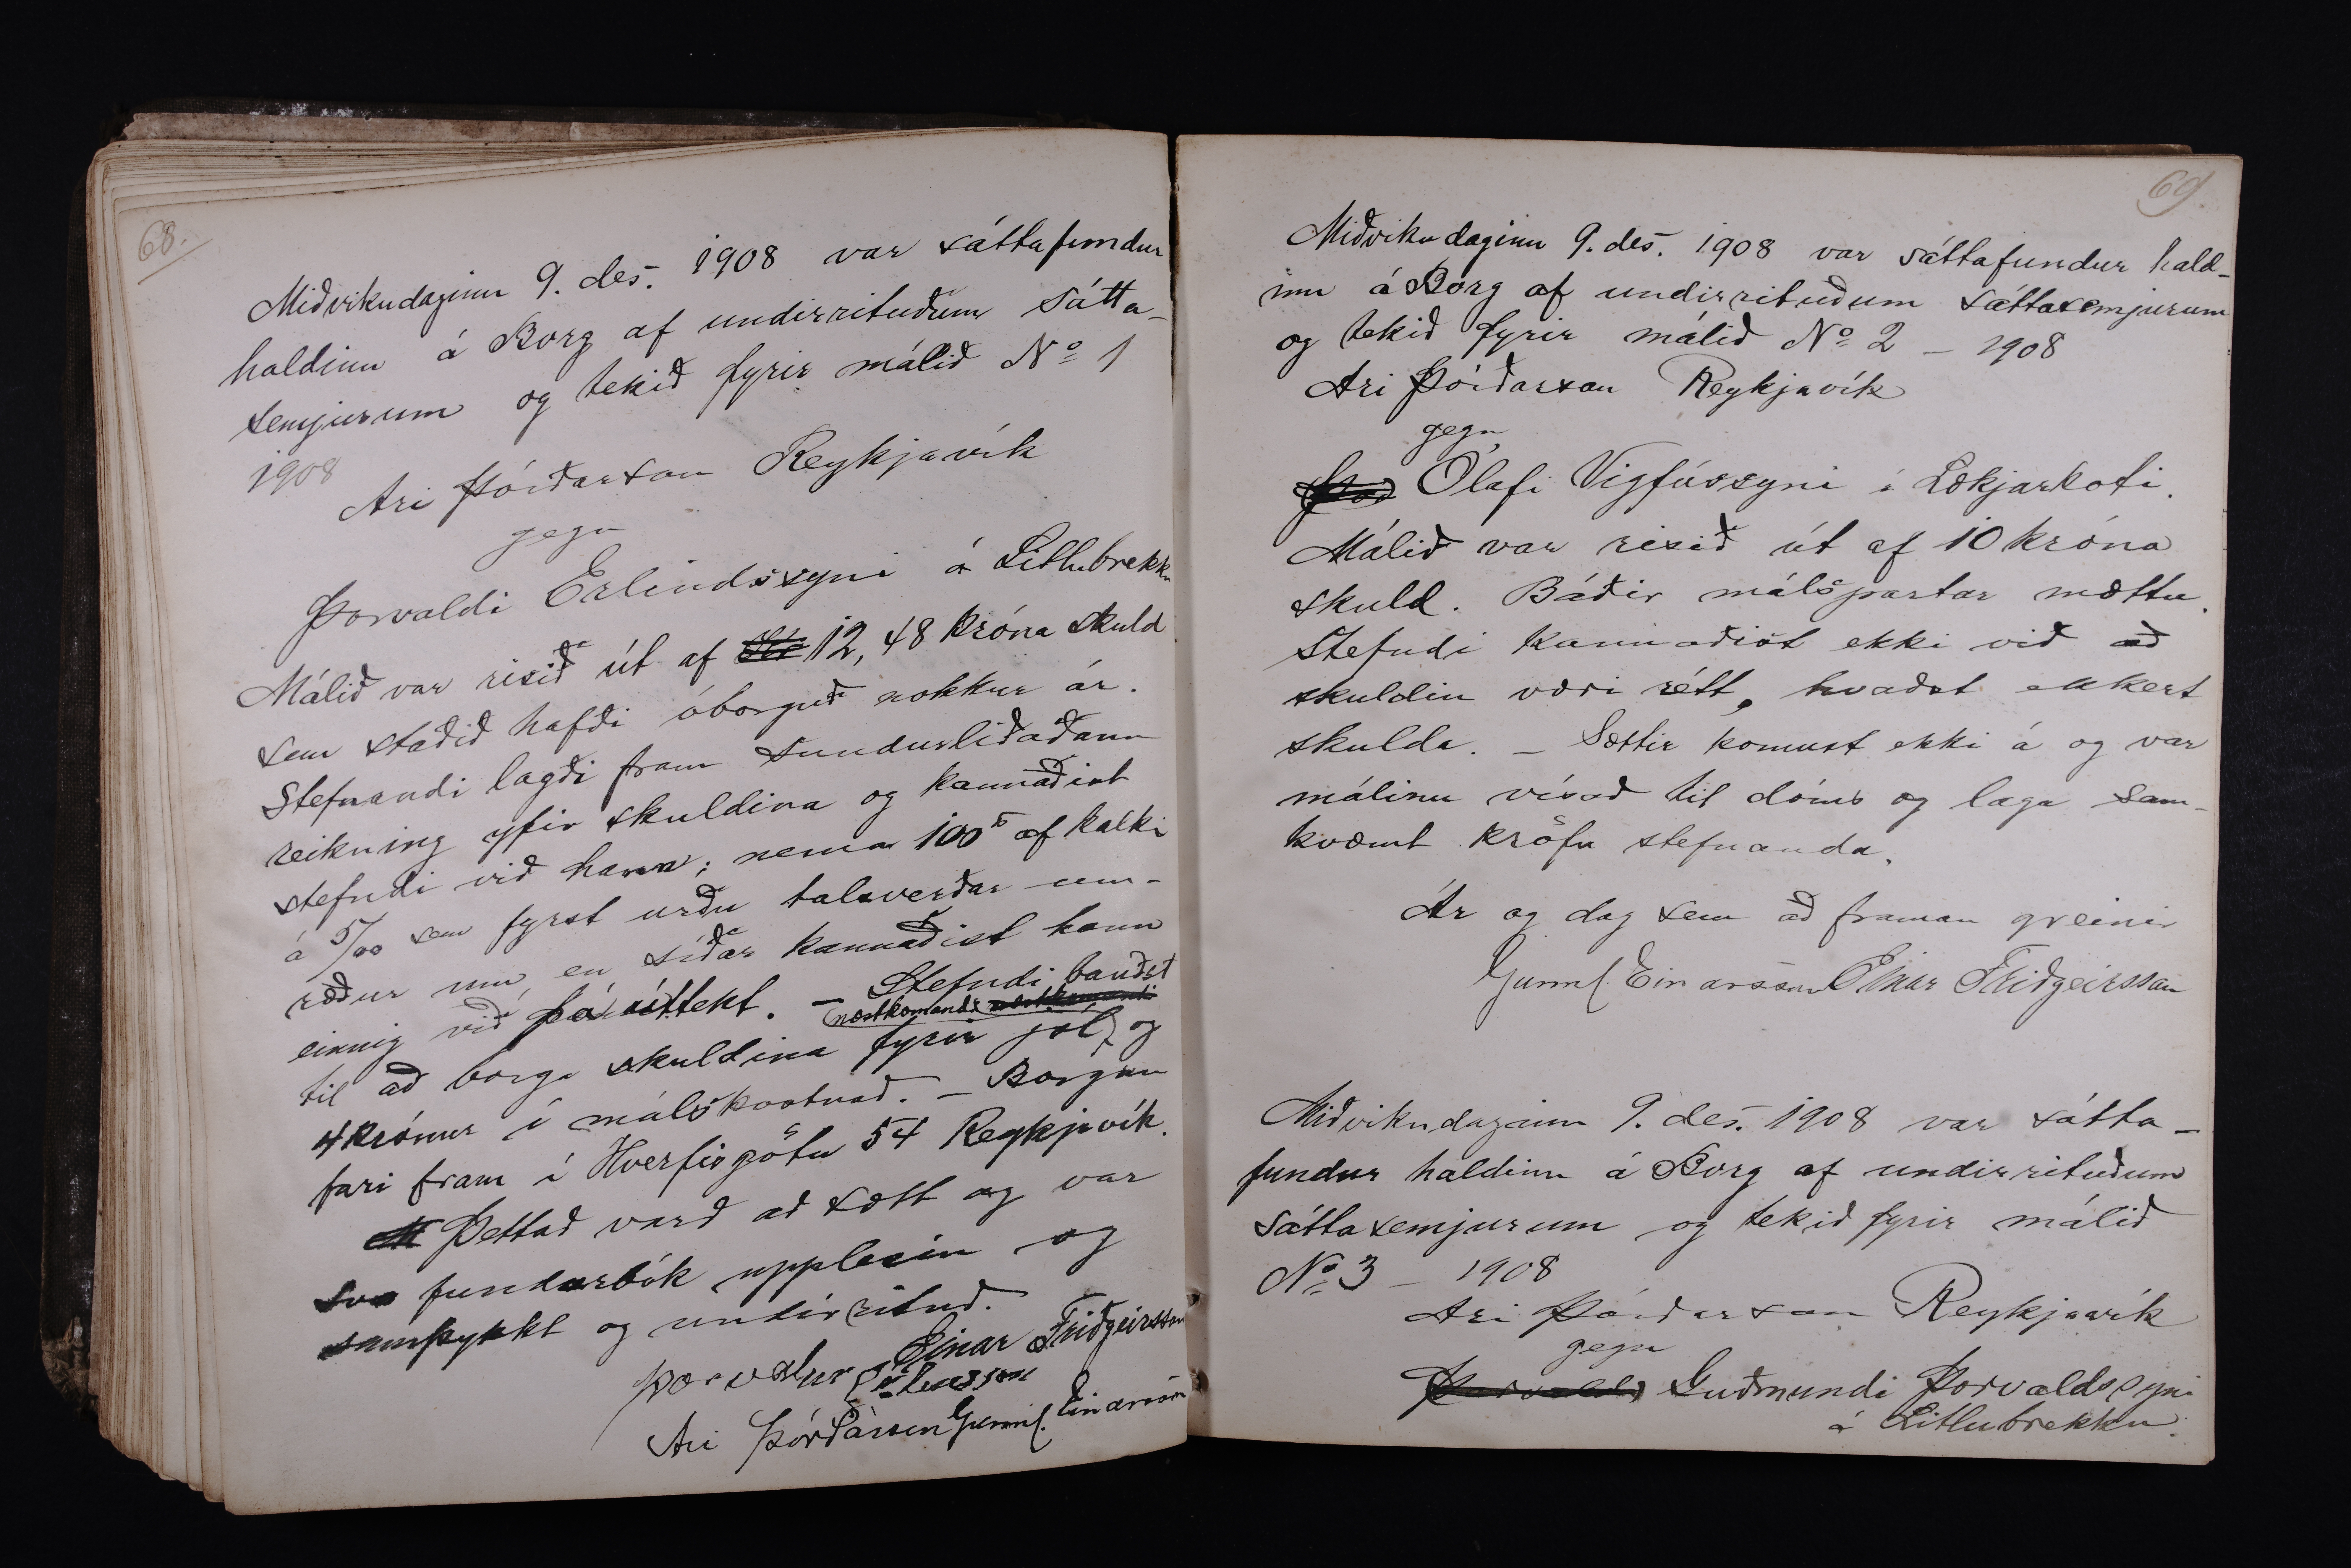 68.
Miðvikudaginn 9. des. 1908 var sáttafundur
haldinn á Borg af undirrituðum sátta-
semjurum og tekið fyrir málið Nº 1
1908
Ari Þórðarson Reykjavík
gegn
Þorvaldi Erlindssyni á Litlubrekku
Málið var risið út af 12,48 króna skuld
sem staðið hafði óborguð nokkur ár.
Stefnandi lagði fram sundurliðaðann
reikning yfir skuldina og kannaðist
stefndi við hann; nema 100 af kalki
á 5/00 sem fyrst urðu talsverðar um-
ræður um, en síðar kannaðist hann
einnig við þá úttekt. – Stefndi bauðst
til að borga skuldina fyrir jól næstkomandi og
4 krónur í málskostnað. – Borgun
fari fram í Hverfisgötu 54 Reykjavík.
Þettað varð að sætt og var
svo fundarbók upplesin og
samþykkt og undirrituð.
Einar Friðgeirsson
Þorvaldur Erlensson
Ari Þórðarson Gunnl. Einarsson
69
Miðvikudaginn 9. des. 1908 var sáttafundur hald-
inn á Borg af undirrituðum sáttasemjurum
og tekið fyrir málið Nº 2 – 1908
Ari Þórðarson Reykjavík
gegn
Ólafi Vigfússyni í Lækjarkoti.
Málið var risið út af 10 króna
skuld. Báðir málspartar mættu.
Stefndi kannaðist ekki við að
skuldin væri rétt, kvaðst ekkert
skulda. – Sættir komust ekki á og var
málinu vísað til dóms og laga sam-
kvæmt kröfu stefnanda.
Ár og dag sem að framan greinir
Gunnl. Einarsson Einar Friðgeirsson
Miðvikudaginn 9. des. 1908 var sátta-
fundur haldinn á Borg af undirrituðum
sáttasemjurum og tekið fyrir málið
Nº 3 – 1908
Ari Þórðarson Reykjavík
gegn
Guðmundi Þorvaldssyni
á Litlubrekku.